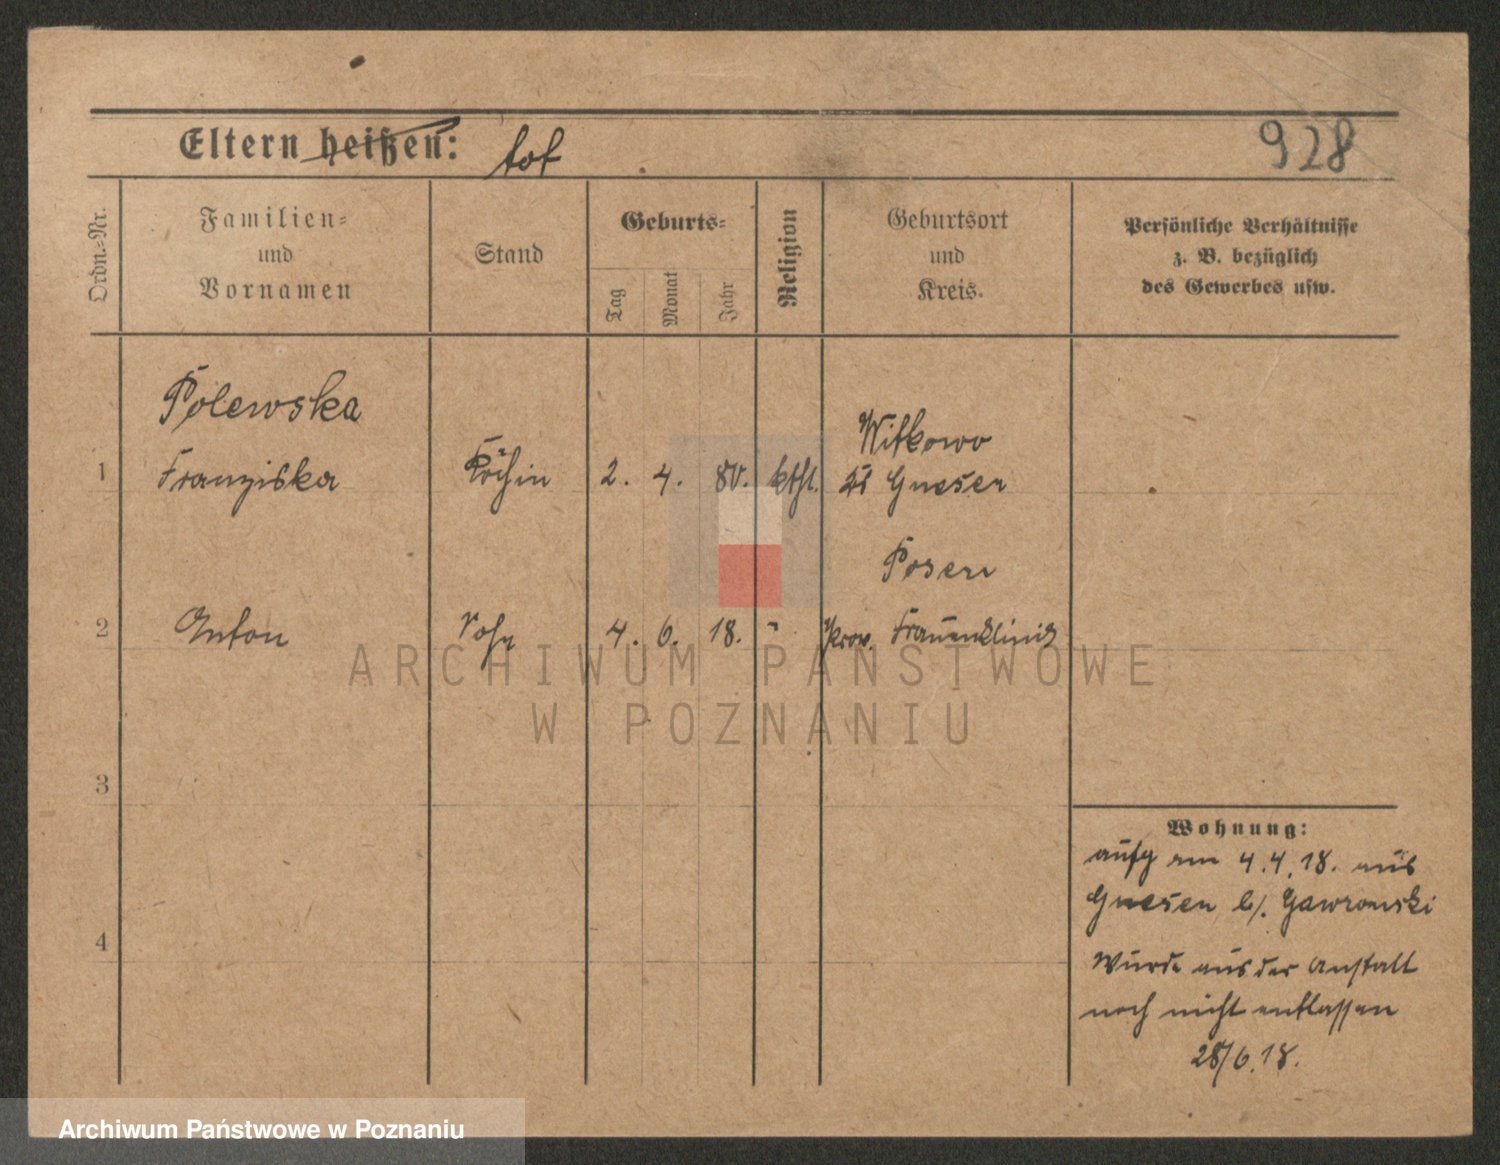 Eltern heißen: tot
928
Ordn.-Nr.
Familien-
und
Vornamen
Stand
Geburts-
Tag
Monat
Jahr
Religion
Geburtsort
und
Kreis.
Persönliche Verhältnisse
z. B. bezüglich
des Gewerbes usw.
Polewska
Witkowo
1 Franziska Köchin 2. 4. 80. kthl. Krs Gnesen
Posen
2 Anton Sohn 4. 6. 18. " Prov. Frauenklinik
ARCHIWUM PAŃSTWOWE
W POZNANIU
3
Wohnung:
aufg am 4.4.18. aus
Gnesen b/. Gawronski
4
Wurde aus der Anstalt
noch nicht entlassen
28/6.18.
Archiwum Państwowe w Poznaniu